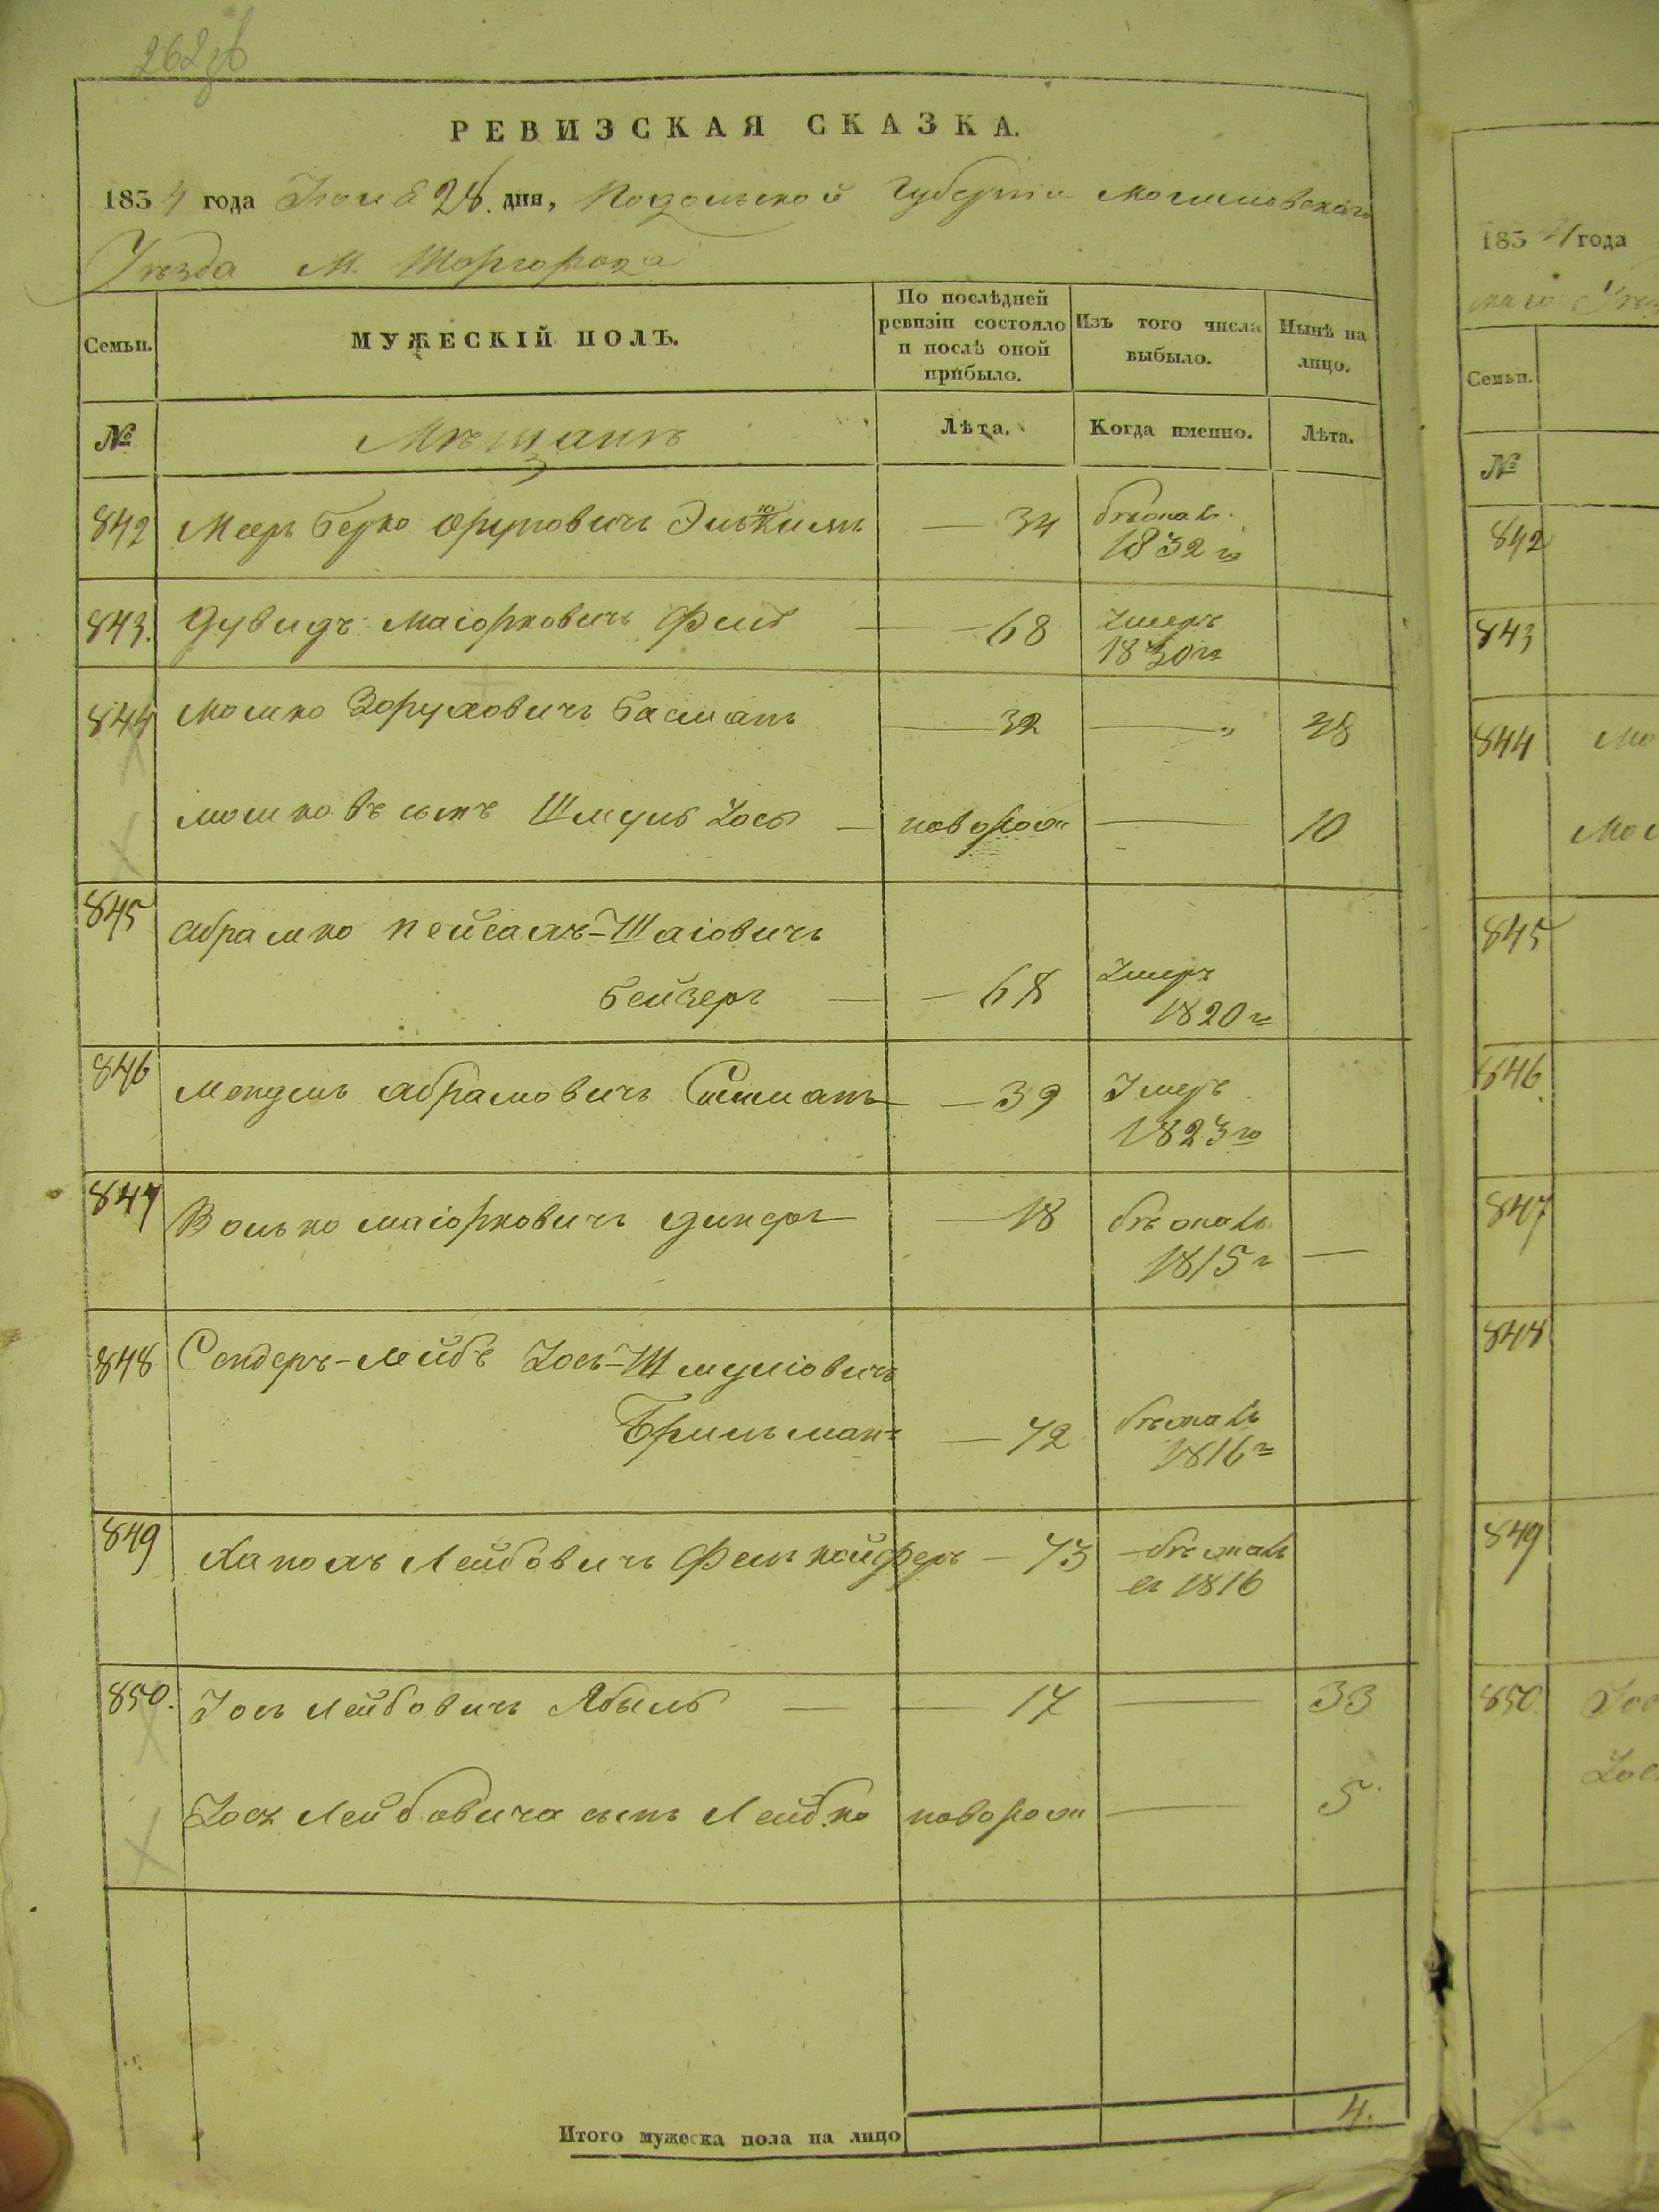 262
РЕВИЗСКАЯ СКАЗКА.
1834 года Июня 28. дня, Подольской Губерніи Могилевскаго
Уѣзда М.
Семьи.
МУЖЕСКІЙ ПОЛЪ.
По послѣдней ревизіи состояло и послѣ оной прибыло.
Изъ того числа выбыло.
Нынѣ на лицо.
№
Мѣщанъ
Лѣта.
Когда именно.
Лѣта.
842 Мееръ Берко — 34 бѣжалъ 1832 го
843. Дувидъ Маіорковичъ — 68 умеръ 1830 го
844 Мошко Басманъ — 32 — 38
Мошковъ сынъ Шмуль Іось — новорож — 10
845 Абрамко Пейсахъ-Шаіовичъ
Бейзеръ — 68 Умеръ 1820 го
846 Мендель Абрамовичъ — 39 Умеръ 1823 го
847 Волько Маіорковичъ — 18 бѣжалъ 1815 г —
848 Сендеръ-Лейбъ Іось-Шмуліовичъ
Брильманъ — 72 бѣжалъ 1816 г
849 Лейбовичъ — 73 — бѣжалъ
въ 1816
850. Іось Лейбовичъ — 17 — 33
Іося Лейбовича сынъ Лейбко новорож — 5
Итого мужеска пола на лицо 4.
1834 года
Семьи.
№
842
843
844 Мо
845
846.
847
848
849
850 Іос